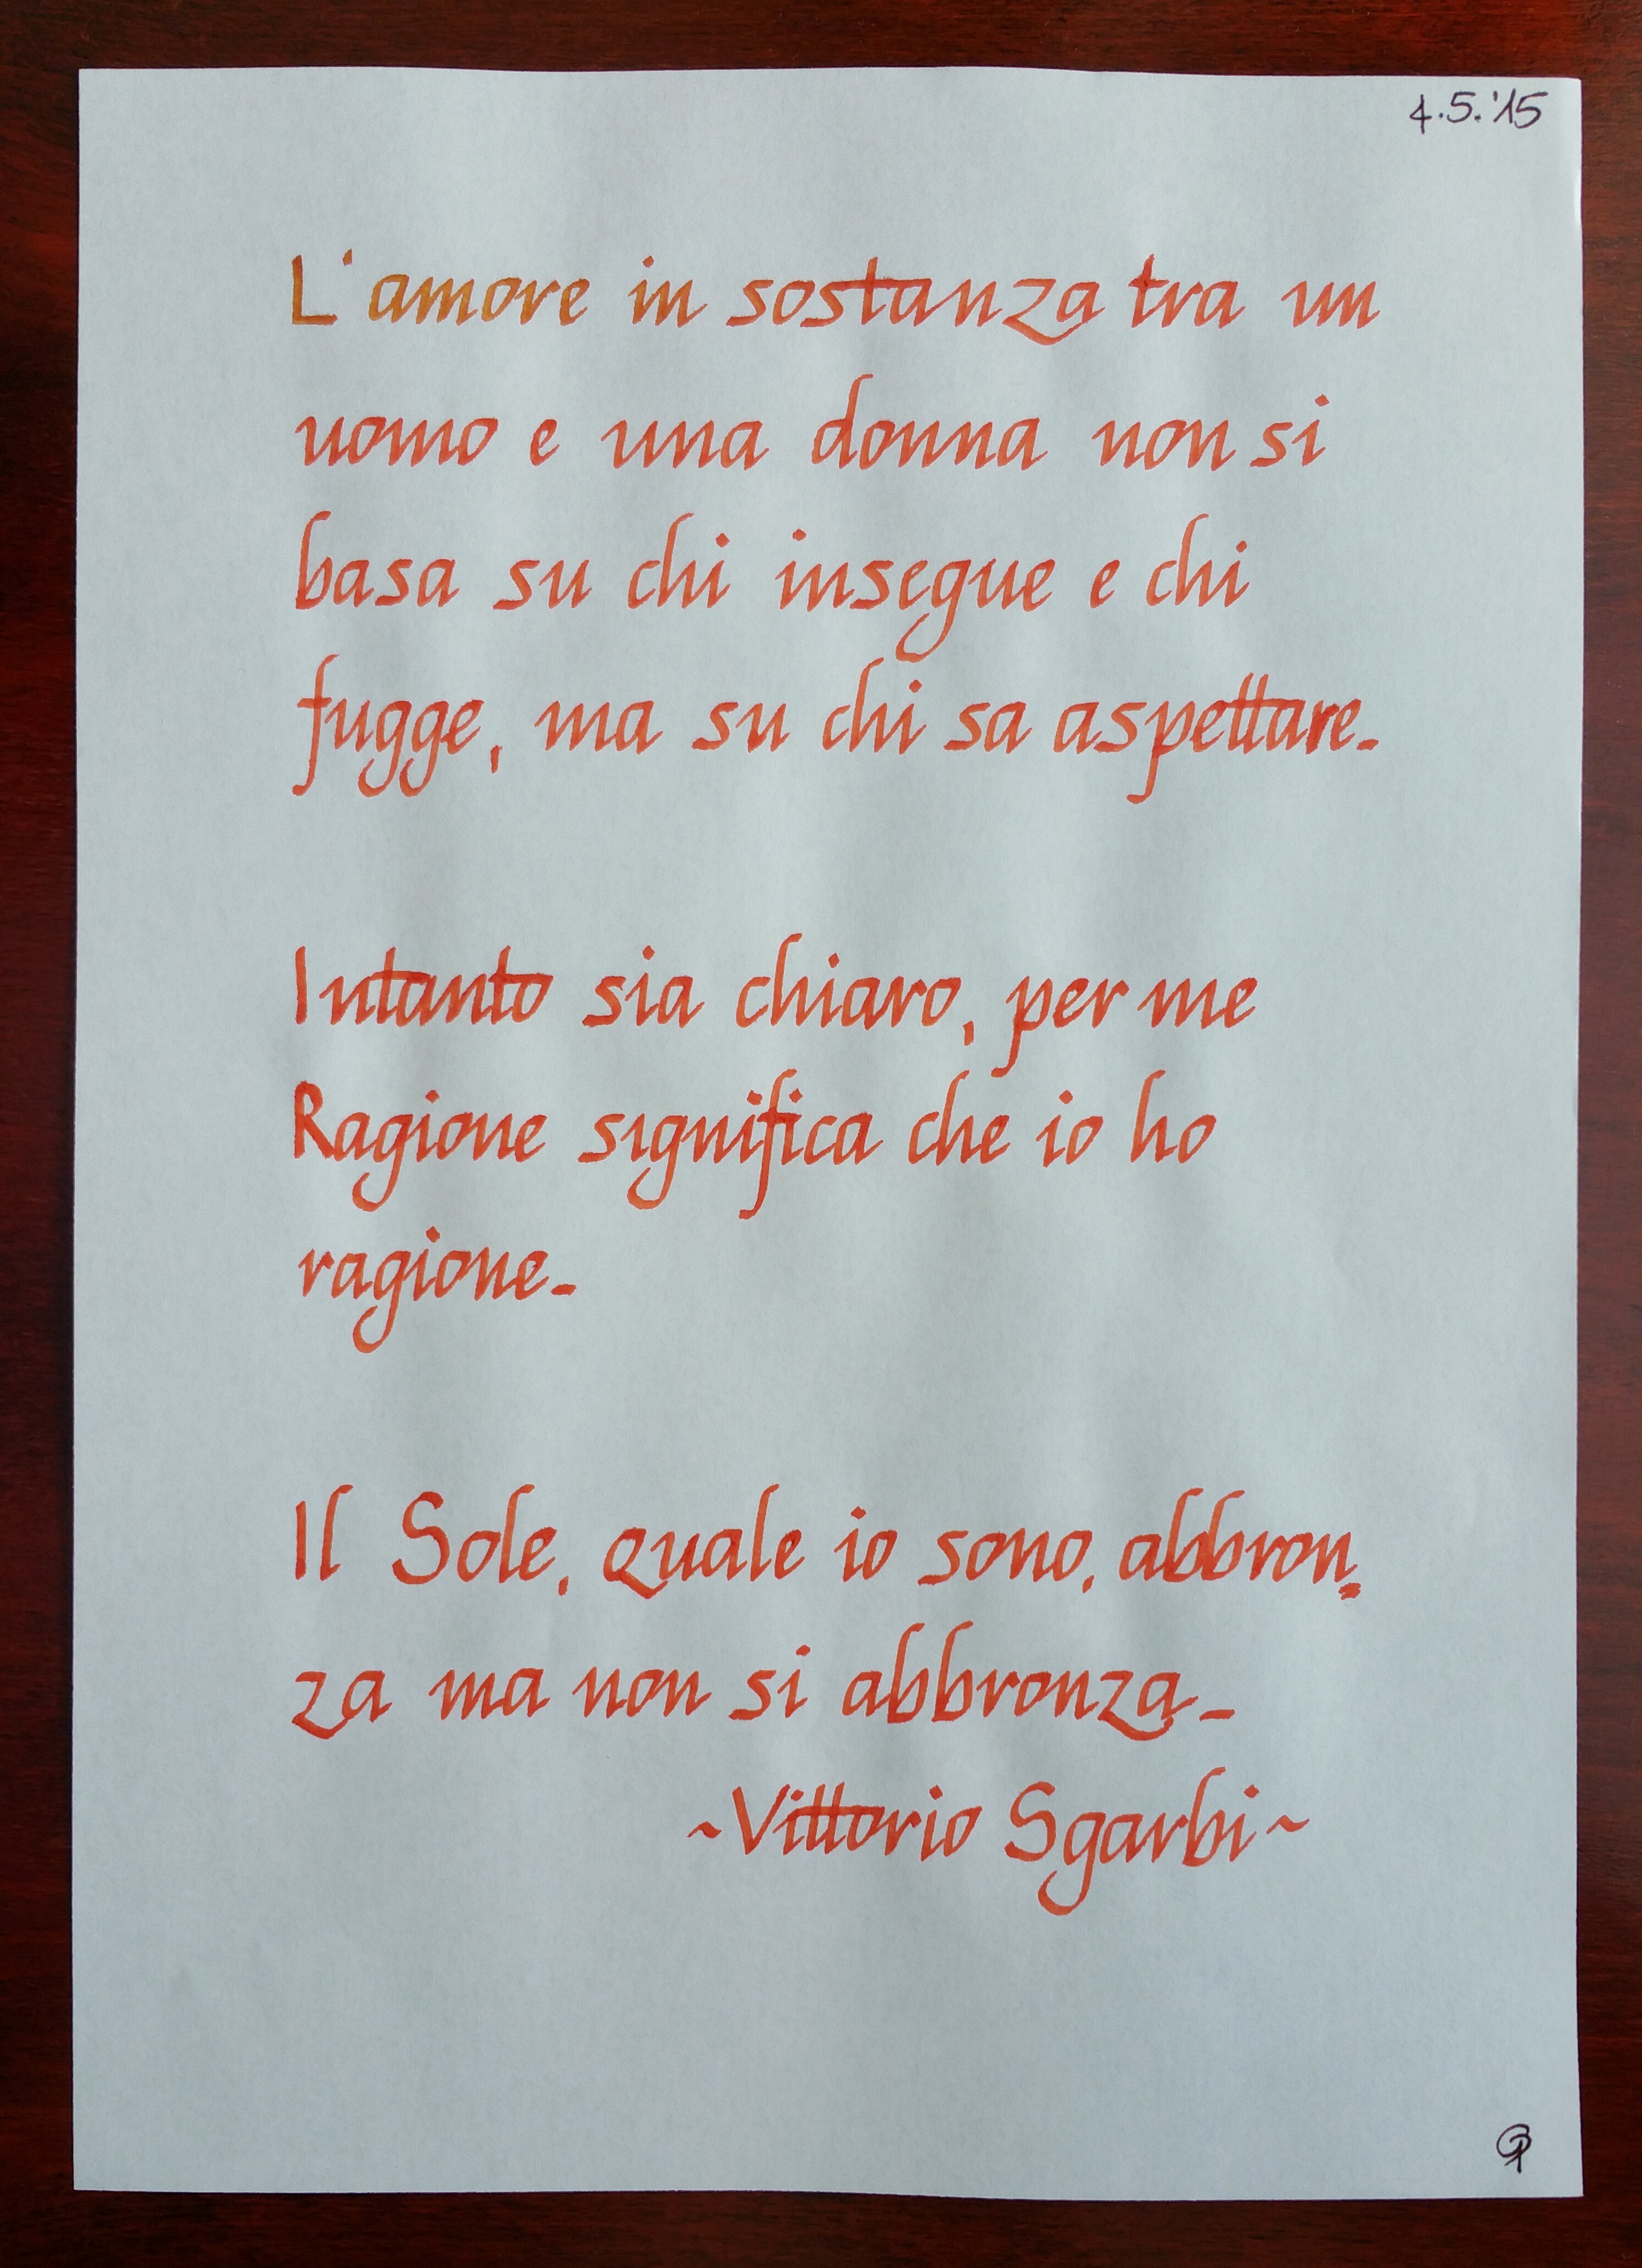 4.5.'15
L'amore in sostanza tra un
uomo e una donna non si
basa su chi insegue e chi
fugge, ma su chi sa aspettare-
Intanto sia chiaro, per me
Ragione significa che io ho
ragione-
Il Sole, quale io sono, abbron=
za ma non si abbronza-
~Vittorio Sgarbi~